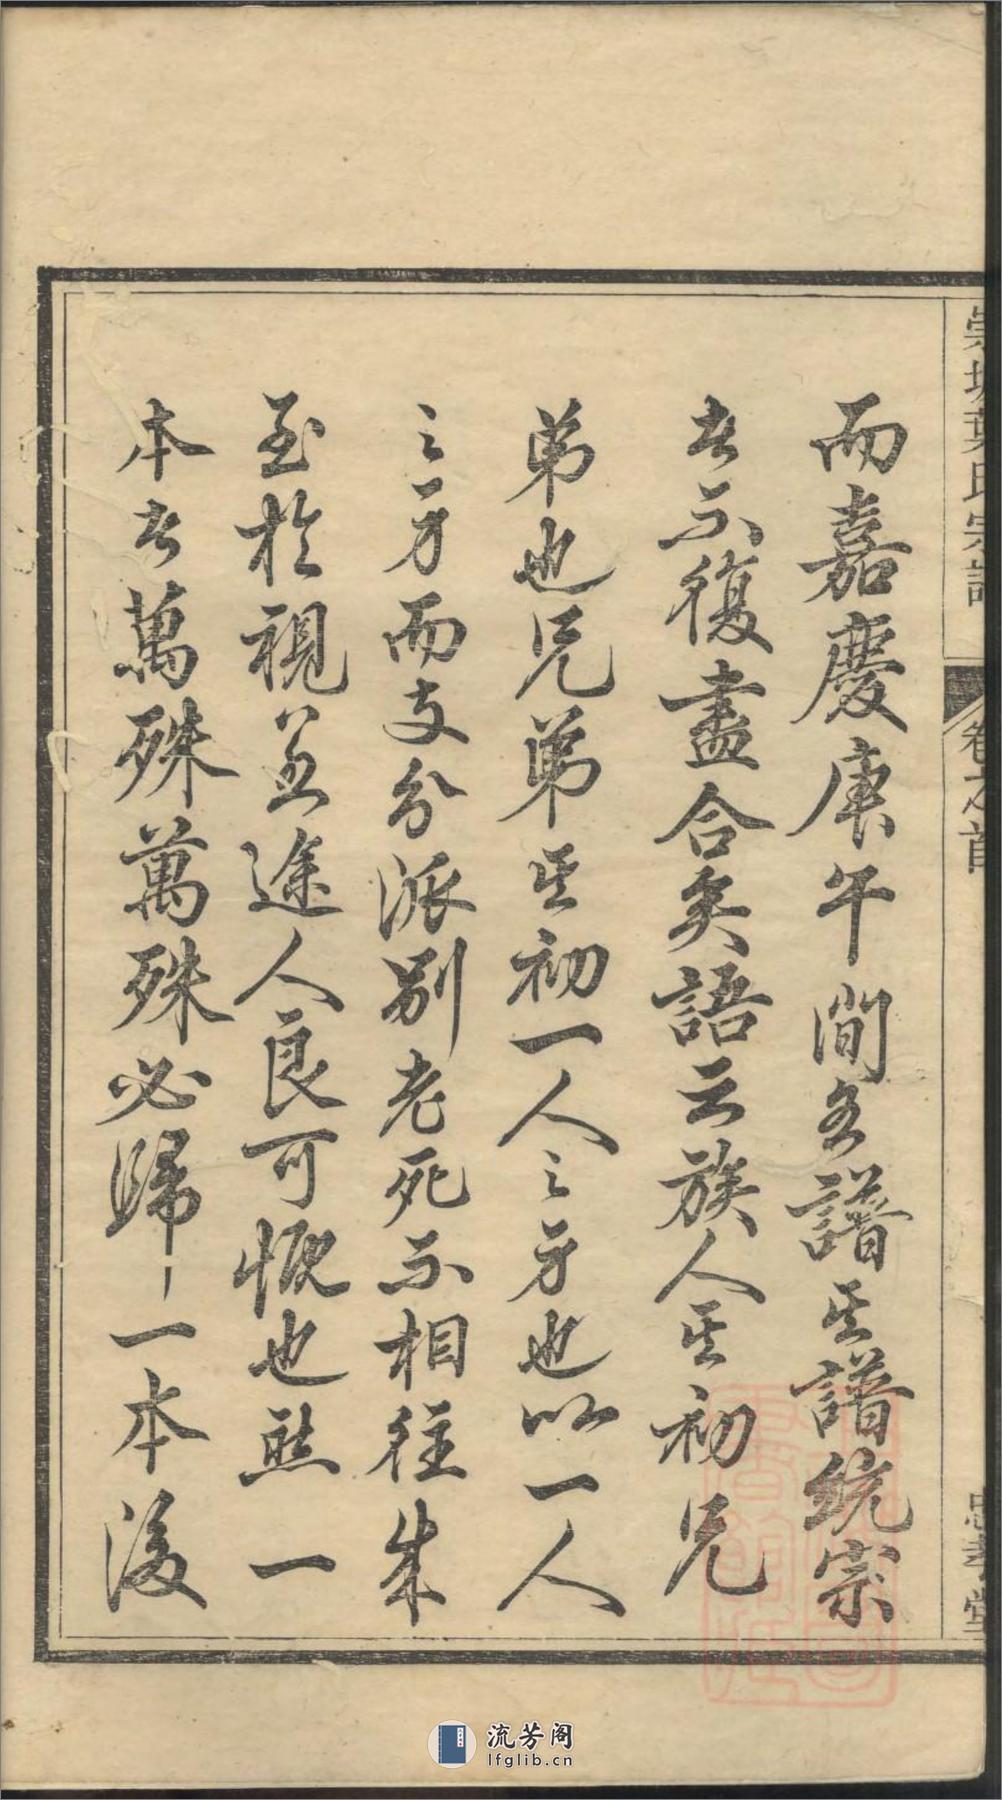 崇坡葉氏宗譜 卷之首 忠孝堂
而嘉慶庚午間各譜其譜統宗
者不復盡合矣語云族人其初兄
弟也兄弟其初一人之身也以一人
之身而支分派別老死不相往來
至於視若途人良可慨也然一
本者萬殊萬殊必歸一本後
流芳阁
lfglib.cn